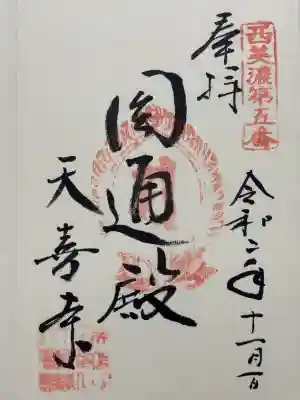 西美濃第五番
奉拝
圓通殿
天喜寺
令和二年十一月一日